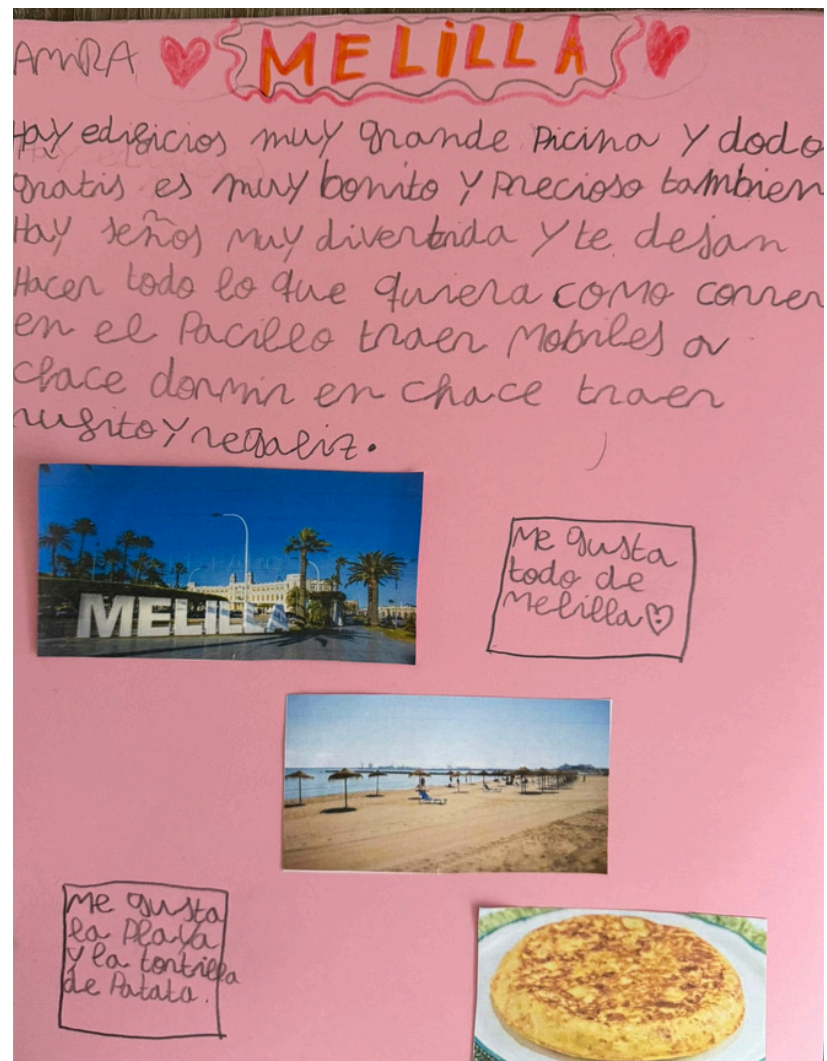 AMIRA
MELILLA
Hay edificios muy grande Picina y dodo
gratis es muy bonito y precioso tambien
Hay señoj muy divertida y te dejan
Hacer todo lo que quiera como correr
en el Pacillo traer Mobiles a
chace dormir en chace traer
rusito y regaliz.
MELILLA
Me gusta
todo de
Melilla
Me gusta
la Playa
y la tontrilla
de Patata.